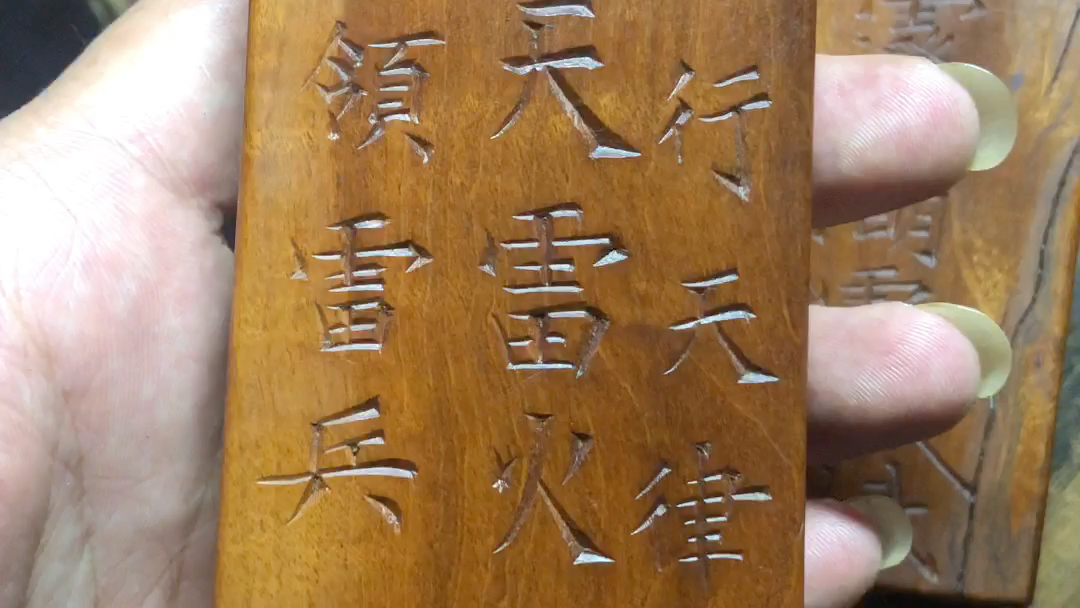 行天律
天雷火
領雷兵